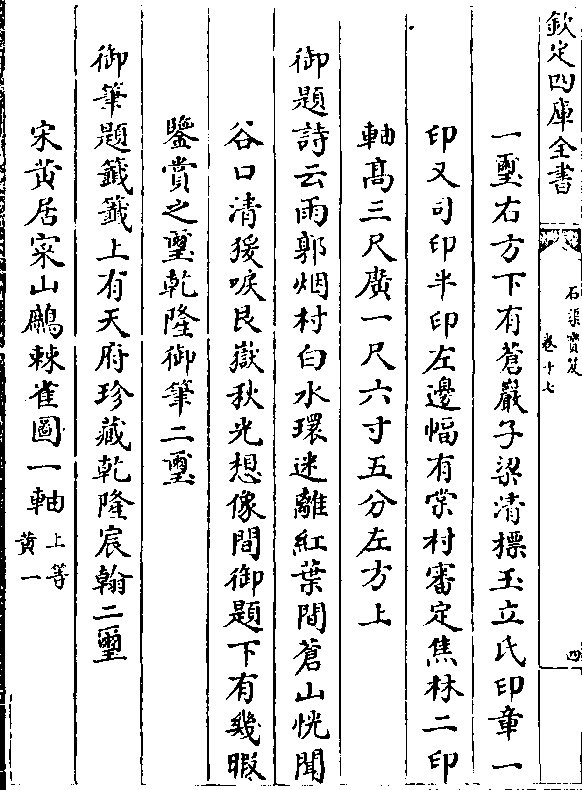 欽定四庫全書
石渠寳笈
卷十七
四
一璽右方下有蒼巖子梁清標玉立氏印章一
印又司印半印左邊幅有棠村審定焦林二印
軸髙三尺廣一尺六寸五分左方上
御題詩云雨郭烟村白水環迷離紅葉間蒼山恍聞
谷口清猨唳艮嶽秋光想像間御題下有幾暇
鑒賞之璽乾隆御筆二璽
御筆題籤籤上有天府珍藏乾隆宸翰二璽
宋黄居寀山鷓棘雀圖一軸
上等
黄一